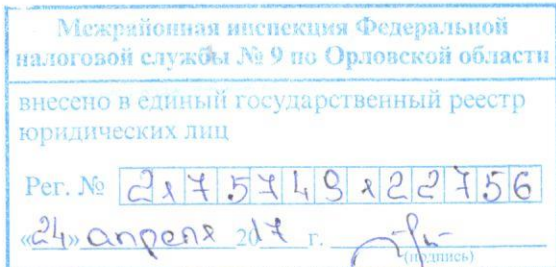 Межрайонная инспекция Федеральной
налоговой службы № 9 по Орловской области
внесено в единый государственный реестр
юридических лиц
Рег. № 2175749122756
«24» апреля 2017 г.
(подпись)